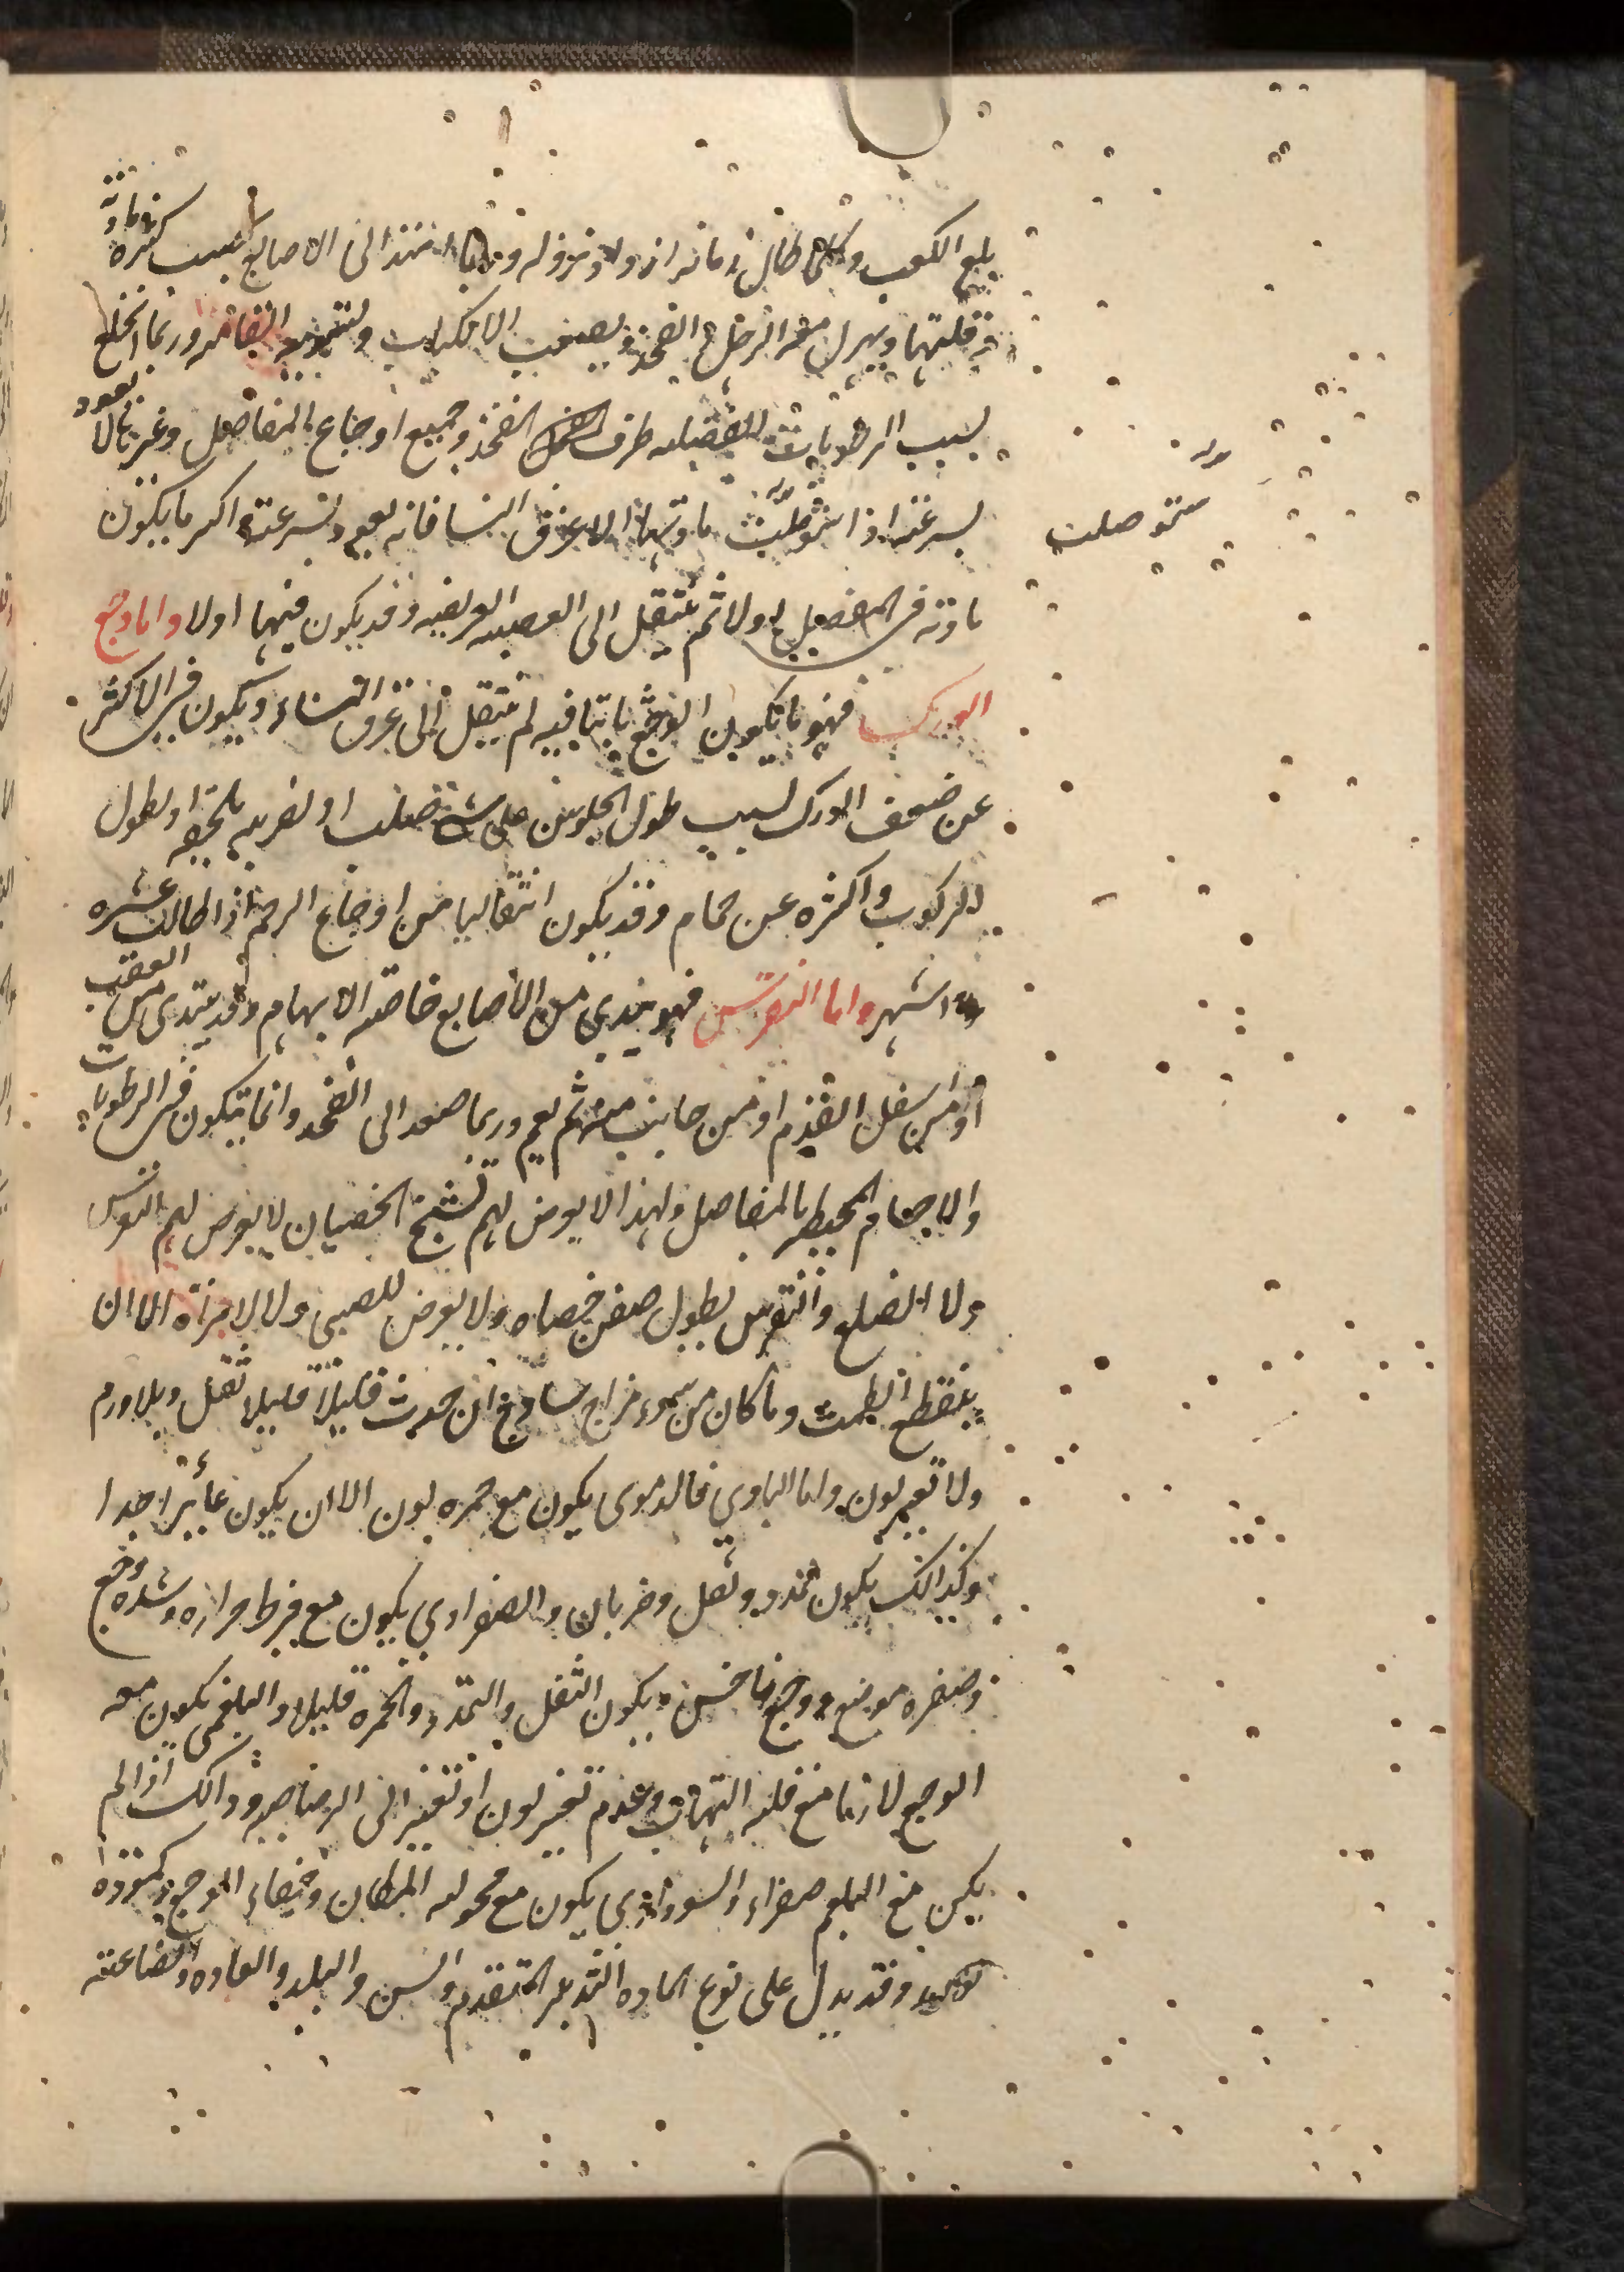 يبلغ الكعب وكلما طال زمانه ازداد نزوله وربما امتد الى الاصابع بحسب كثرة مادته
وقلتها ويهزل منه الرجل والفخذ ويصعب الانكباب وتسوية القامه وربما انخلع
بسبب الرطوبات طرف الفخذ وجميع اوجاع المفاصل وغيرها يعود
بسرعة اذا استوصلت مادتها الا عرق النسا فانه يعود بسرعة اكثر ما يكون
مادته في المفصل اولا ثم تنتقل الى العصبه العريضه وقد يكون فيها اولا واما وجع
الورك فهو ما يكون الوجع ثابتا فيه لم ينتقل الى عرق النساء ويكون في الاكثر
عن ضعف الورك بسبب طول الجلوس على شئ صلب او لضربه تلحقه او لطول
الركوب واكثره عن خام وقد يكون انتقاليا من اوجاع الرحم اذا طالت عشره
اشهر واما النقرس فهو يبتدى من الاصابع خاصة الابهام وقد يبتدى من العقب
او من اسفل القدم او من جانب منه ثم يعم وربما صعد الى الفخذ وانما يتكون في الرطوبات
والاجسام المحيطه بالمفاصل ولهذا لا يعرض لهم تشنج الخصيان لا يعرض لهم النقرس
ولا الصلع والنقرس بطول صفن خصاه ولا يعرض للصبى ولا لامراة الا ان
ينقطع الطمث وما كان من سوء مزاج ساذج ان حدث قليلا قليلا ثقل وبلا ورم
ولا تغير لون واما المادي فالدموى يكون مع حمره لون الا ان يكون غائرا جدا
وكذالك يكون تمدد وثقل وضربان والصفراوي يكون مع فرط حراره وشده وجع
وصفره موضع ووجع ناخس ويكون الثقل والتمدد والحمره قليلا والبلغمى يكون معه
الوجع لازما مع قله التهاب وعدم تغير لون او تغير الى الرصاصيه وذالك اذا لم
يكن مع البلغم صفراء والسوداوي يكون مع قحوله المكان وخفاء الوجع وكمودة
لونه وقد يدل على نوع الماده التدبير المتقدم والسن والبلد والعاده والصناعته
استوصلت